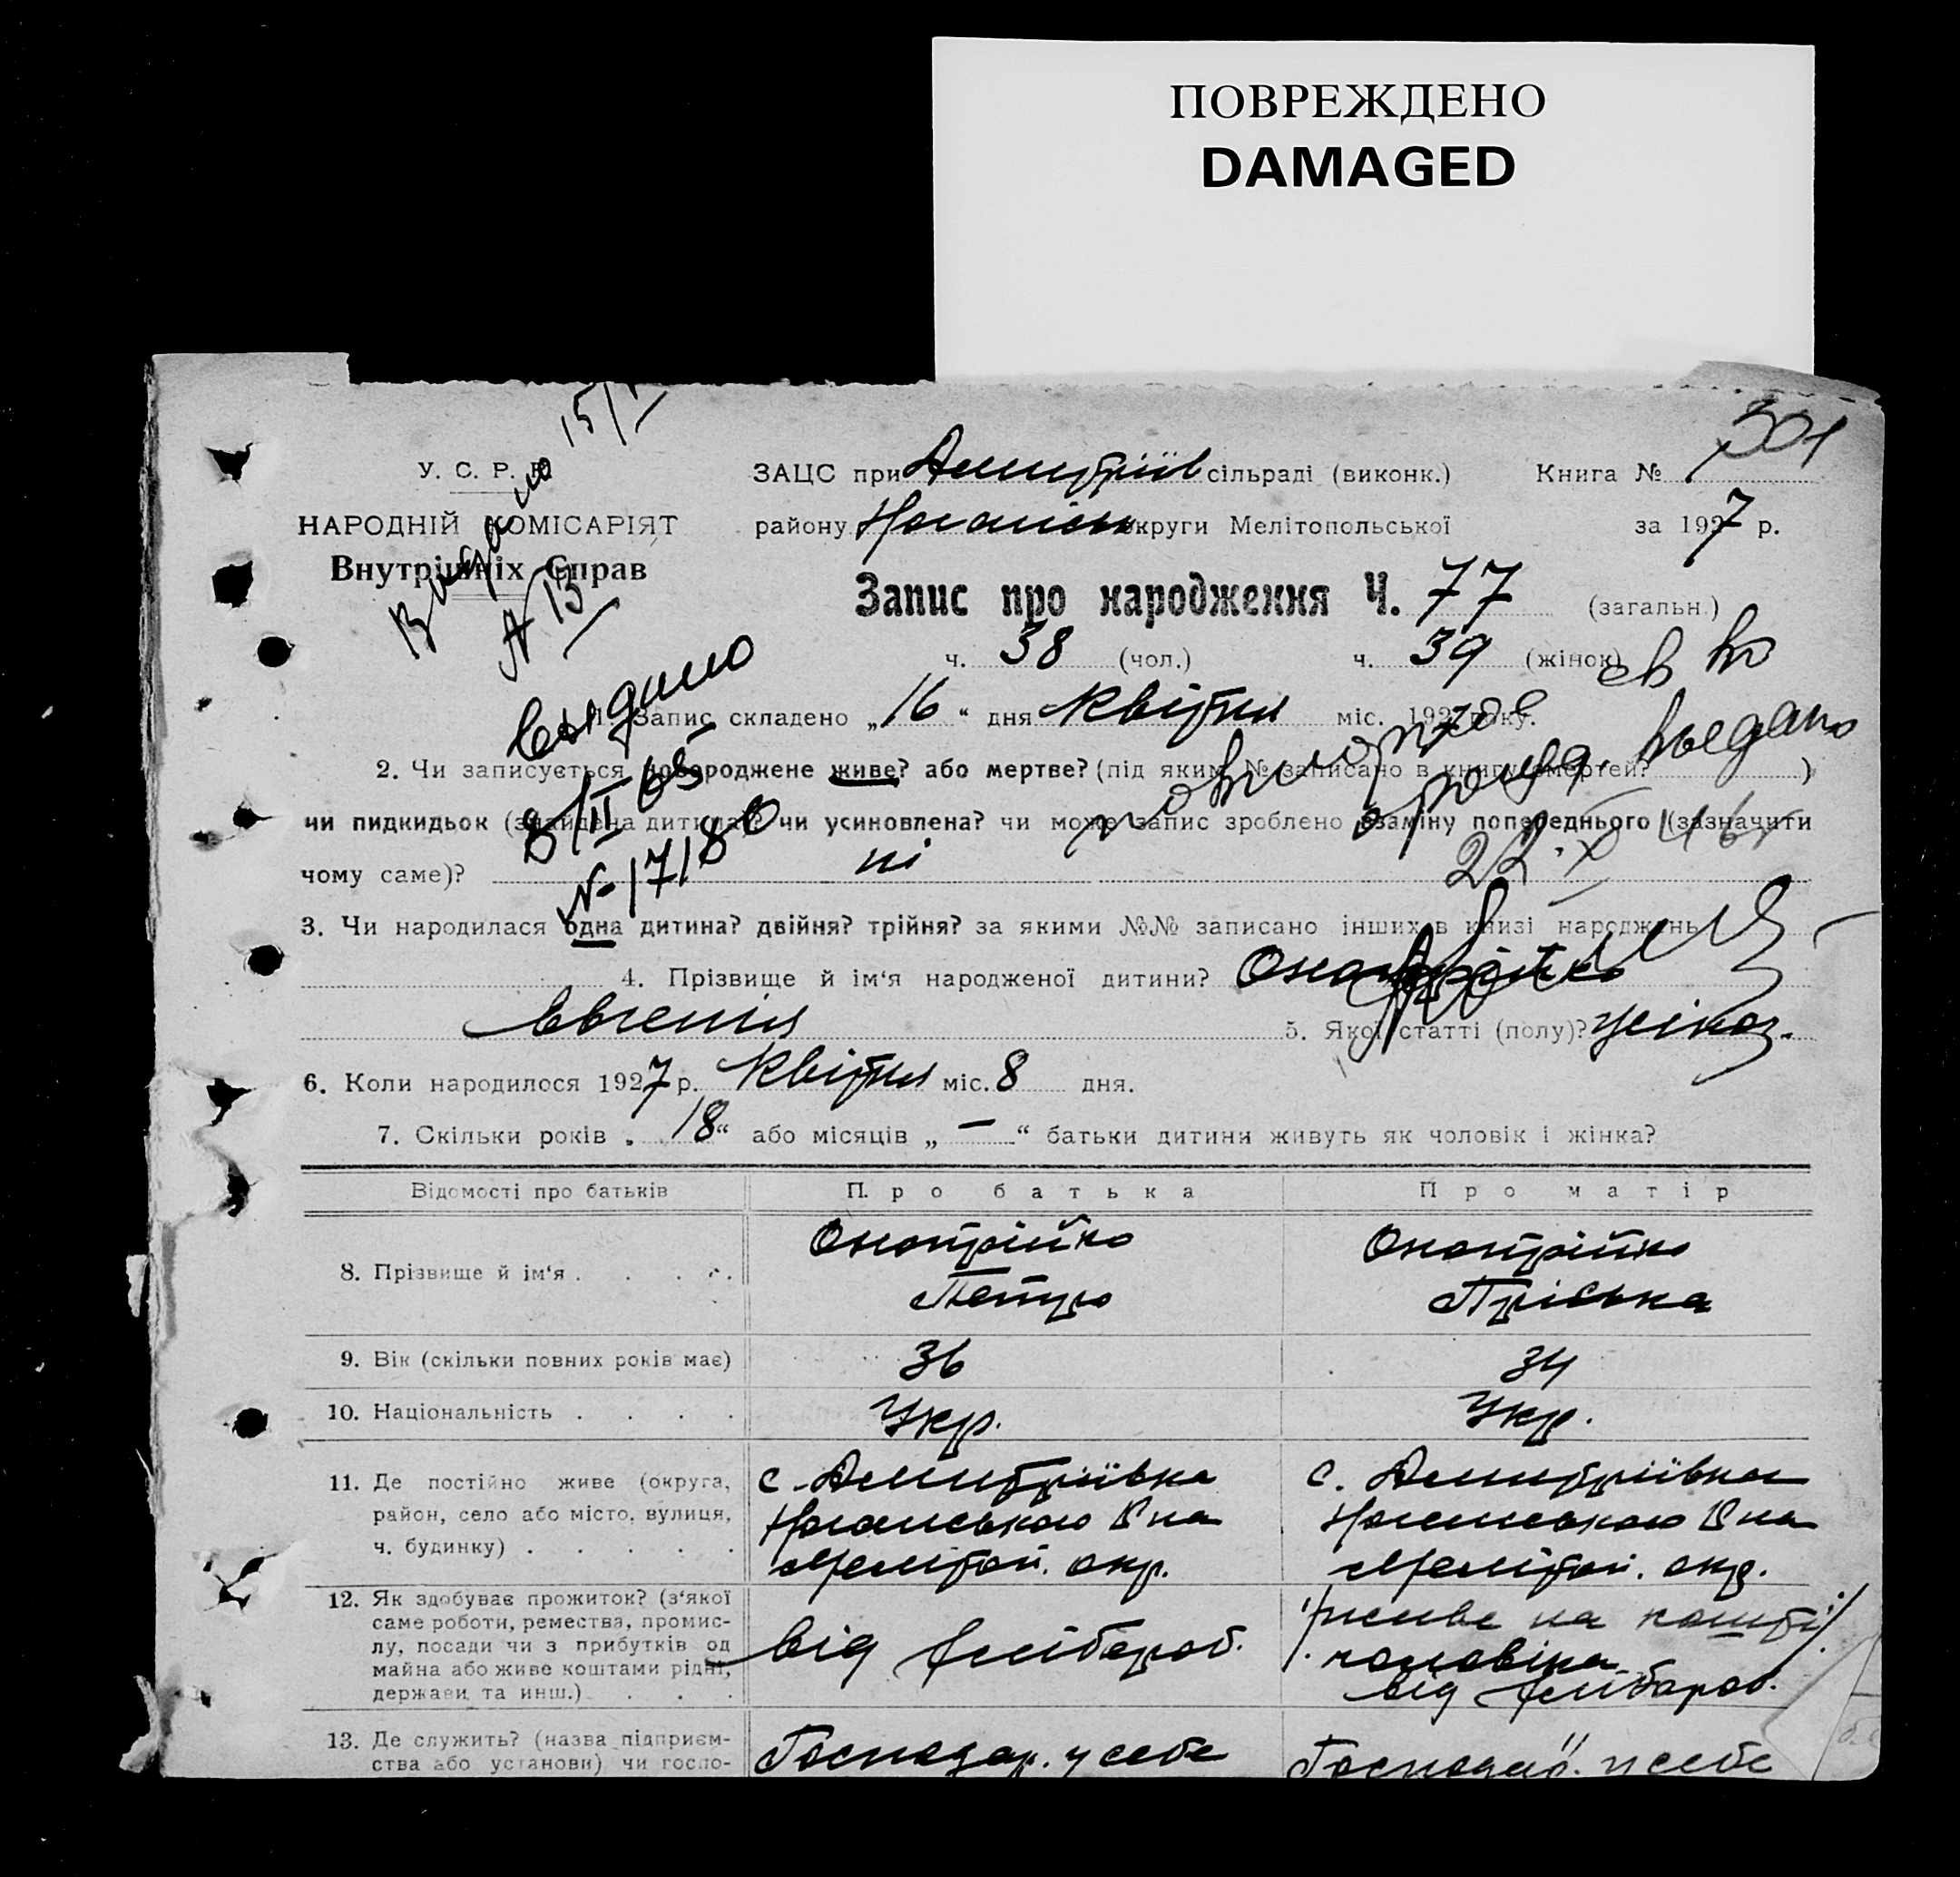 ПОВРЕЖДЕНО
DAMAGED
301
У. С. Р. Р.
НАРОДНІЙ КОМІСАРІЯТ
Внутрішніх Справ
Видано 15/
N 13
ЗАЦС при Дмитріїв сільраді (виконк.) Книга №
району Ногайськ округи Мелітопольської за 1927 р.
Запис про народження Ч. 77 (загальн.)
ч. 38 (чол.) ч. 39 (жінок)
1. Запис складено „16“ дня Квітня міс. 1927 року.
Выдано
8/II 65
№ 17180
повторное
св во
о рожд. выдано
22.X
2. Чи записується новороджене живе? або мертве? (під яким № записано в книгу смертей? )
чи пидкидьок (знайдена дитина)? чи усиновлена? чи може запис зроблено взаміну попереднього (зазначити
чому саме)? ні
3. Чи народилася одна дитина? двійня? трійня? за якими №№ записано інших в книзі народжень
4. Прізвище й ім‘я народженої дитини? Онопрійко
Євгенія 5. Якої статті (полу)? жіноч.
6. Коли народилося 1927 р. Квітня міс. 8 дня.
7. Скільки років „18“ або місяців „—“ батьки дитини живуть як чоловік і жінка?
Відомості про батьків Про батька Про матір
8. Прізвище й ім‘я . . . . Онопрійко Онопрійко
Петро Пріська
9. Вік (скільки повних років має) 36 34
10. Національність . . . . Укр. Укр.
11. Де постійно живе (округа, с. Дмитріївка с. Дмитріївка
район, село або місто, вулиця, Ногайського Р на Ногайського Р на
ч. будинку) . . . . . Мелітоп. окр. Мелітоп. окр.
12. Як здобуває прожиток? (з‘якої живе на кошти
саме роботи, ремества, промис-
лу, посади чи з прибутків од від хлібороб. чоловіка
майна або живе коштами рідні, від хлібороб.
держави та инш.) . . .
13. Де служить? (назва підприєм- Господар. у себе Господар. у себе
ства або установи) чи госпо-